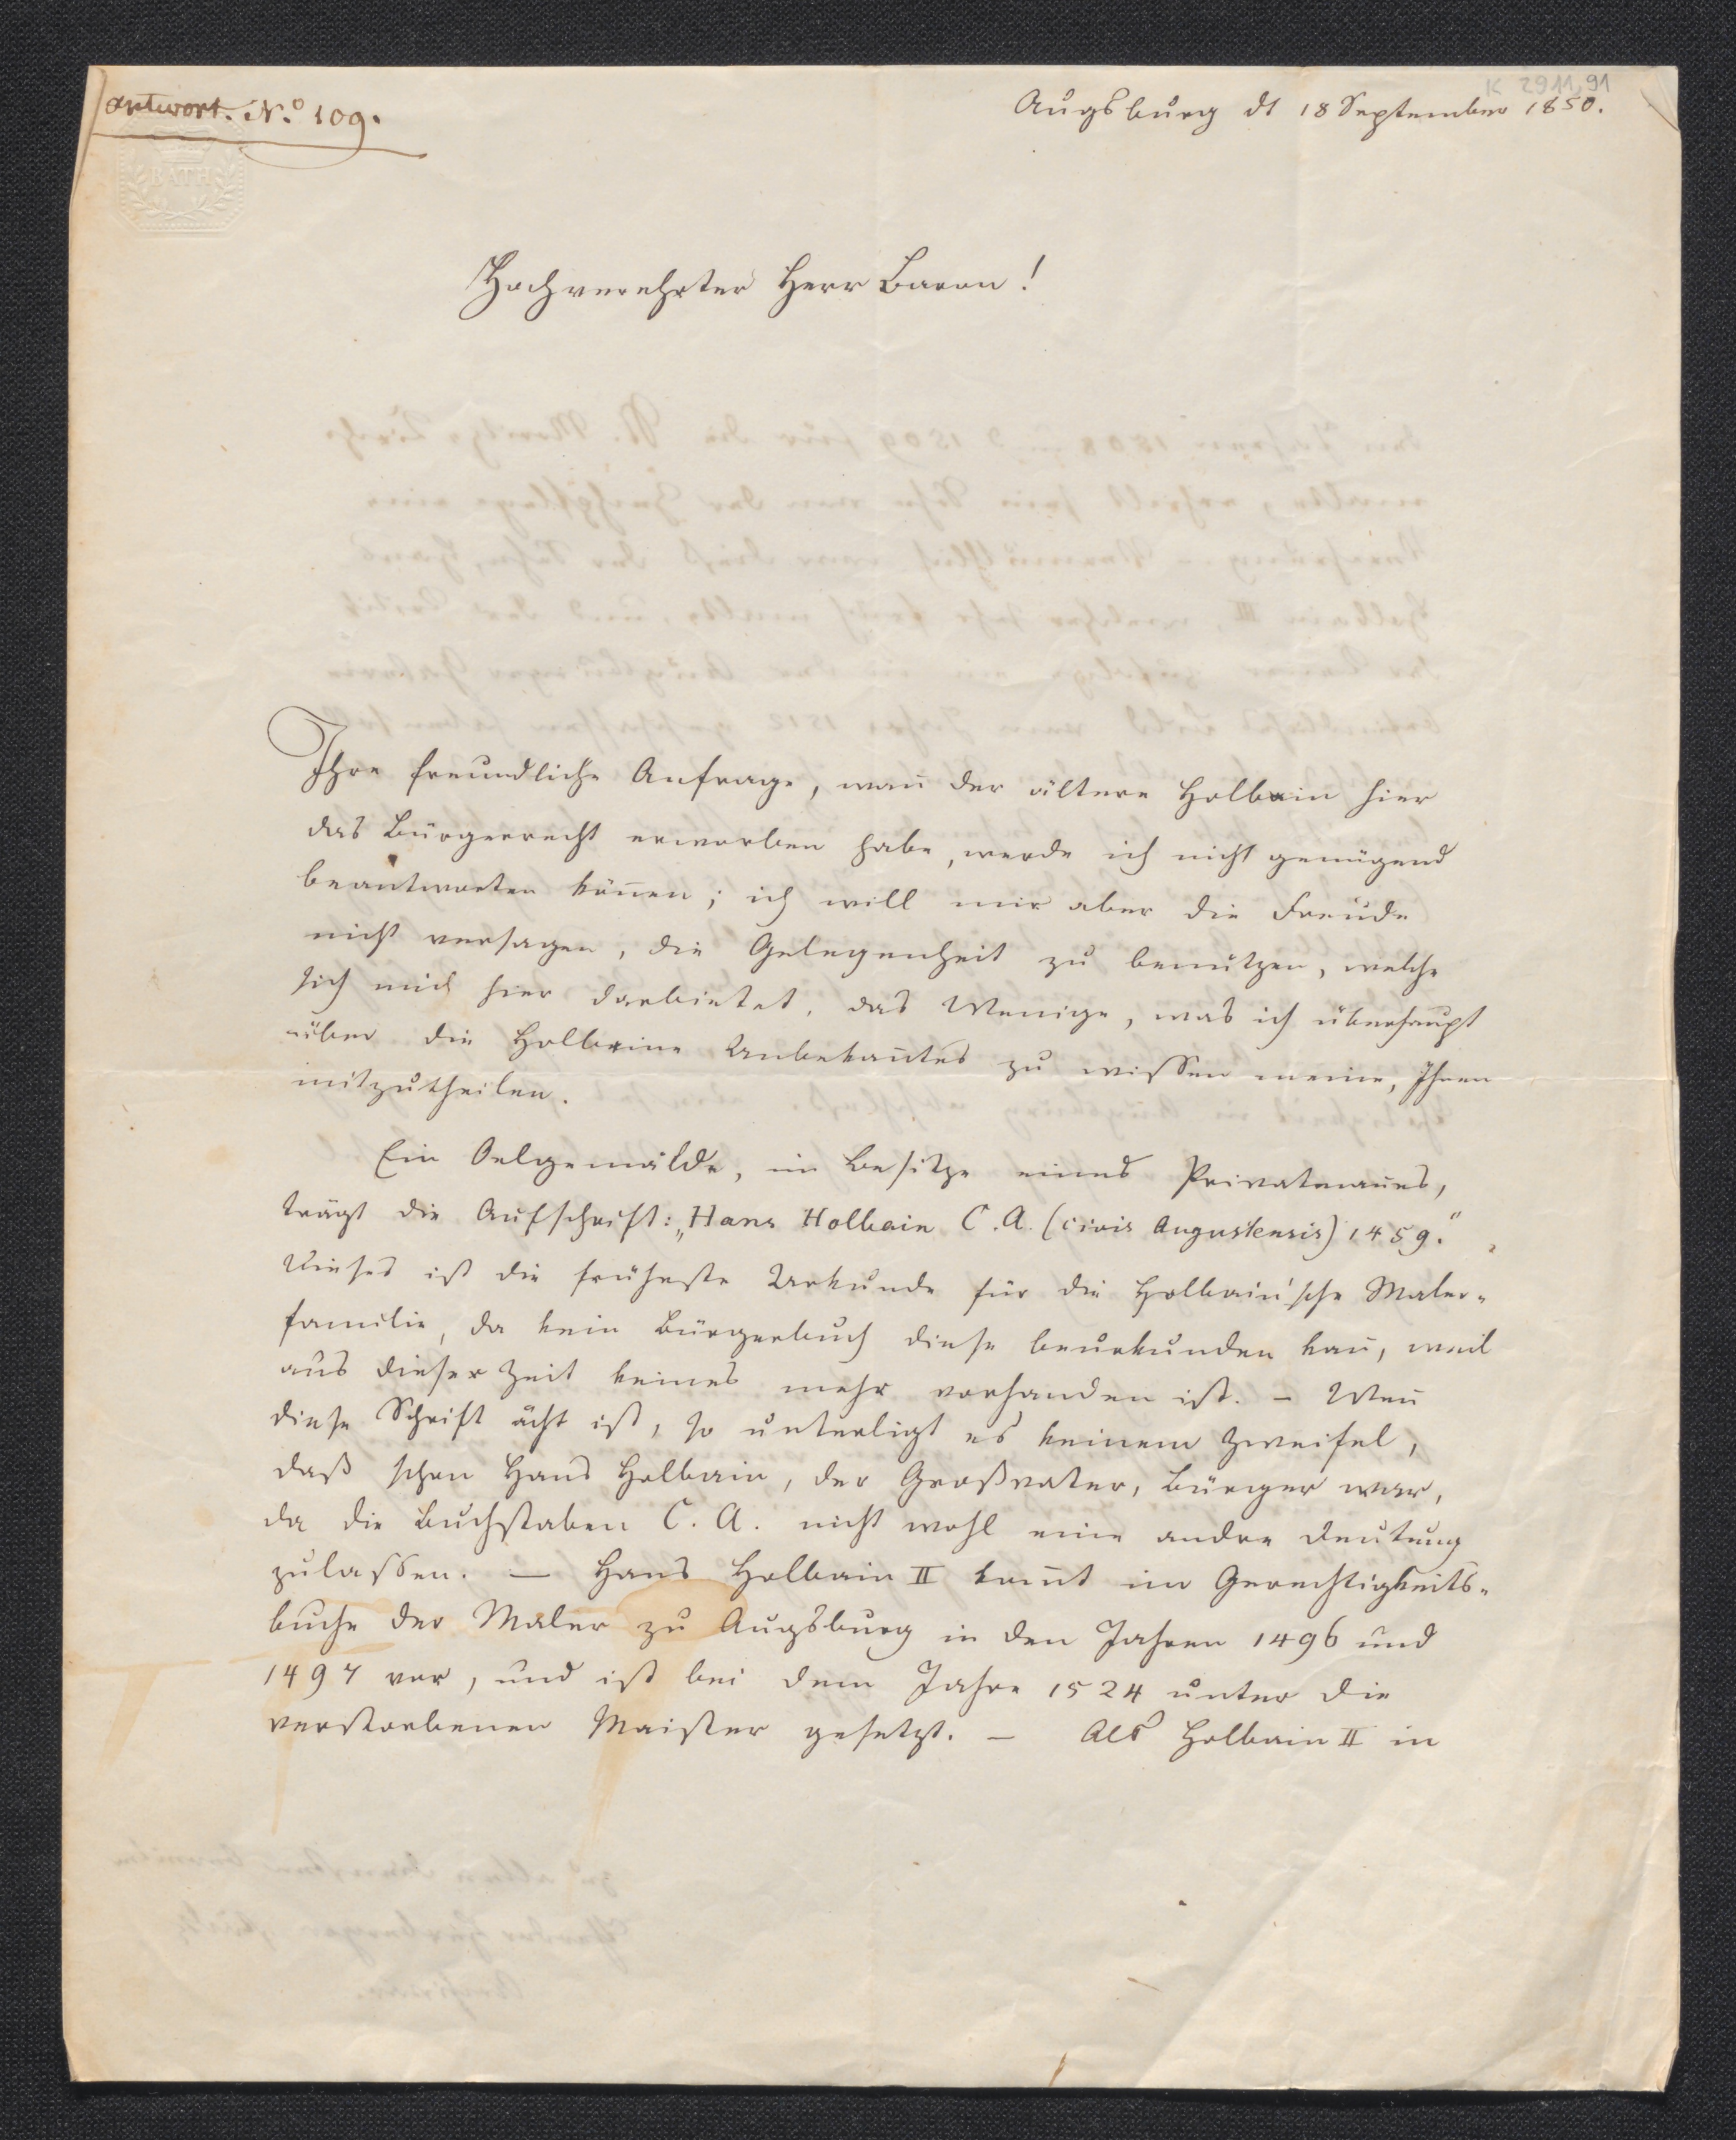 antwort. N.º 109.
K 2911,91
Augsburg dt 18 September 1850.
BATH
Hochverehrter Herr Baron!
Ihre freundliche Anfrage, wañ der ältere Holbein hier
das Bürgerrecht erworben habe, werde ich nicht genügend
beantworten köñen; ich will mir aber die Freude
nicht versagen, die Gelegenheit zu benutzen, welche
sich mich hier darbietet, das Wenige, was ich überhaupt
über die Holbeine Unbekañtes zu wissen meine, Ihnen
mitzutheilen.
Ein Oelgemälde, im Besitze eines Privatmañes,
trägt die Aufschrift: „Hans Holbain C. A. (civis Augustensis) 1459.“
Dieses ist die früheste Urkunde für die Holbain'sche Maler-
familie, da kein Bürgerbuch diese beurkunden kañ, weil
aus dieser Zeit keines mehr vorhanden ist. – Weñ
diese Schrift ächt ist, so unterligt es keinem Zweifel,
daß schon Hans Holbain, der Großvater, Bürger war,
da die Buchstaben C. A. nicht wohl eine andre Deutung
zulassen. — Hans Holbain II kom̃t im Gerechtigkeits-
buche der Maler zu Augsburg in den Jahren 1496 und
1497 vor, und ist bei dem Jahre 1524 unter die
verstorbenen Maister gesetzt. — Als Holbain II in